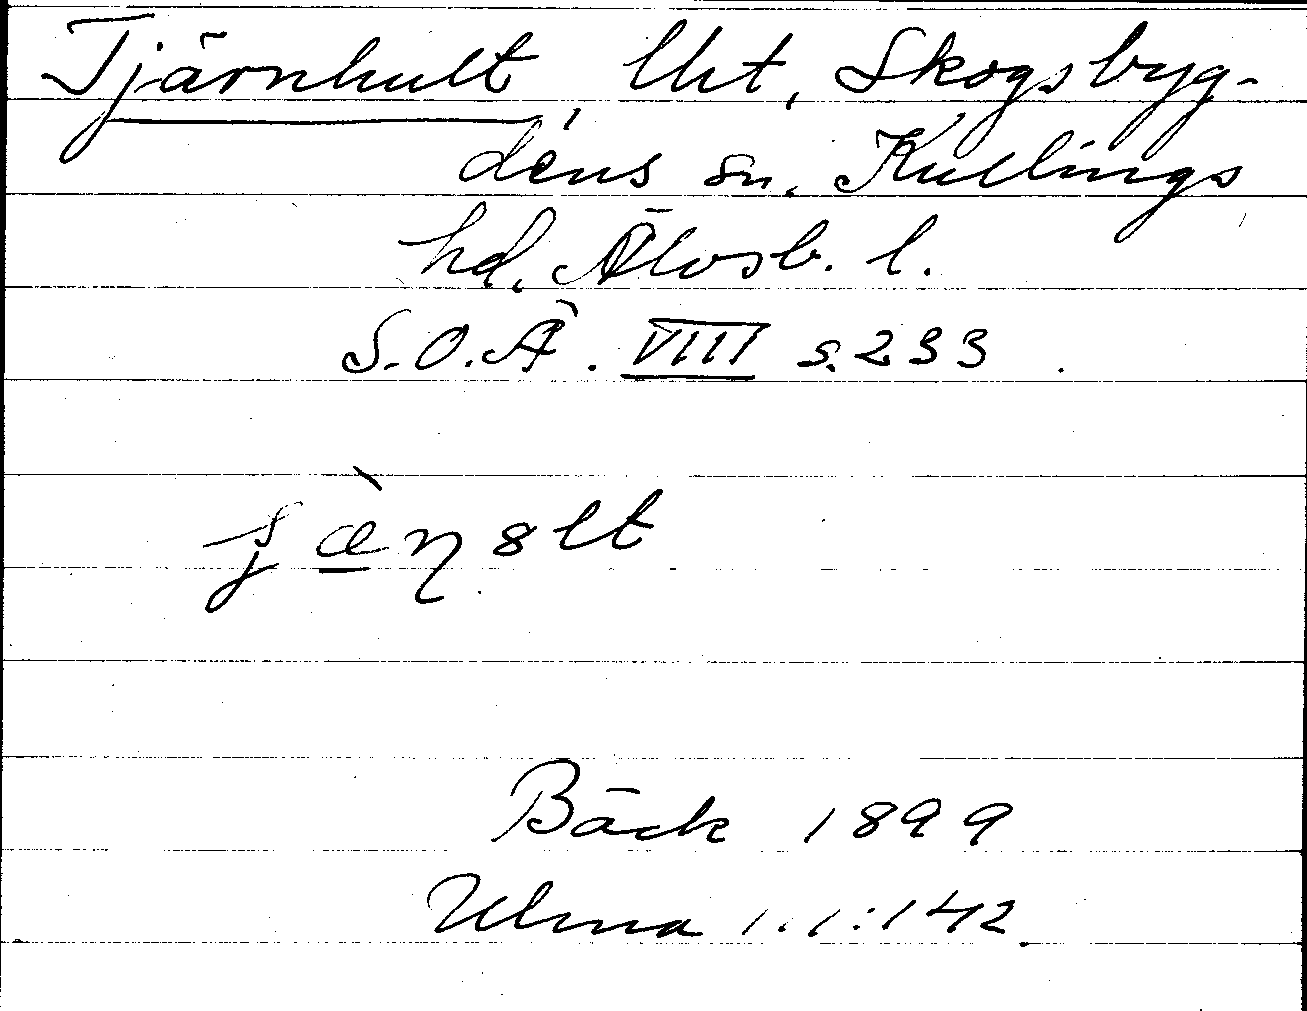 Tjärnhult, Uht, Skogsbyg-
dens sn. Kullings
hd. Älvsb. l.
S.O.Ä. VIII s. 233.
Bäck 1899
Ulma 1.1:142.